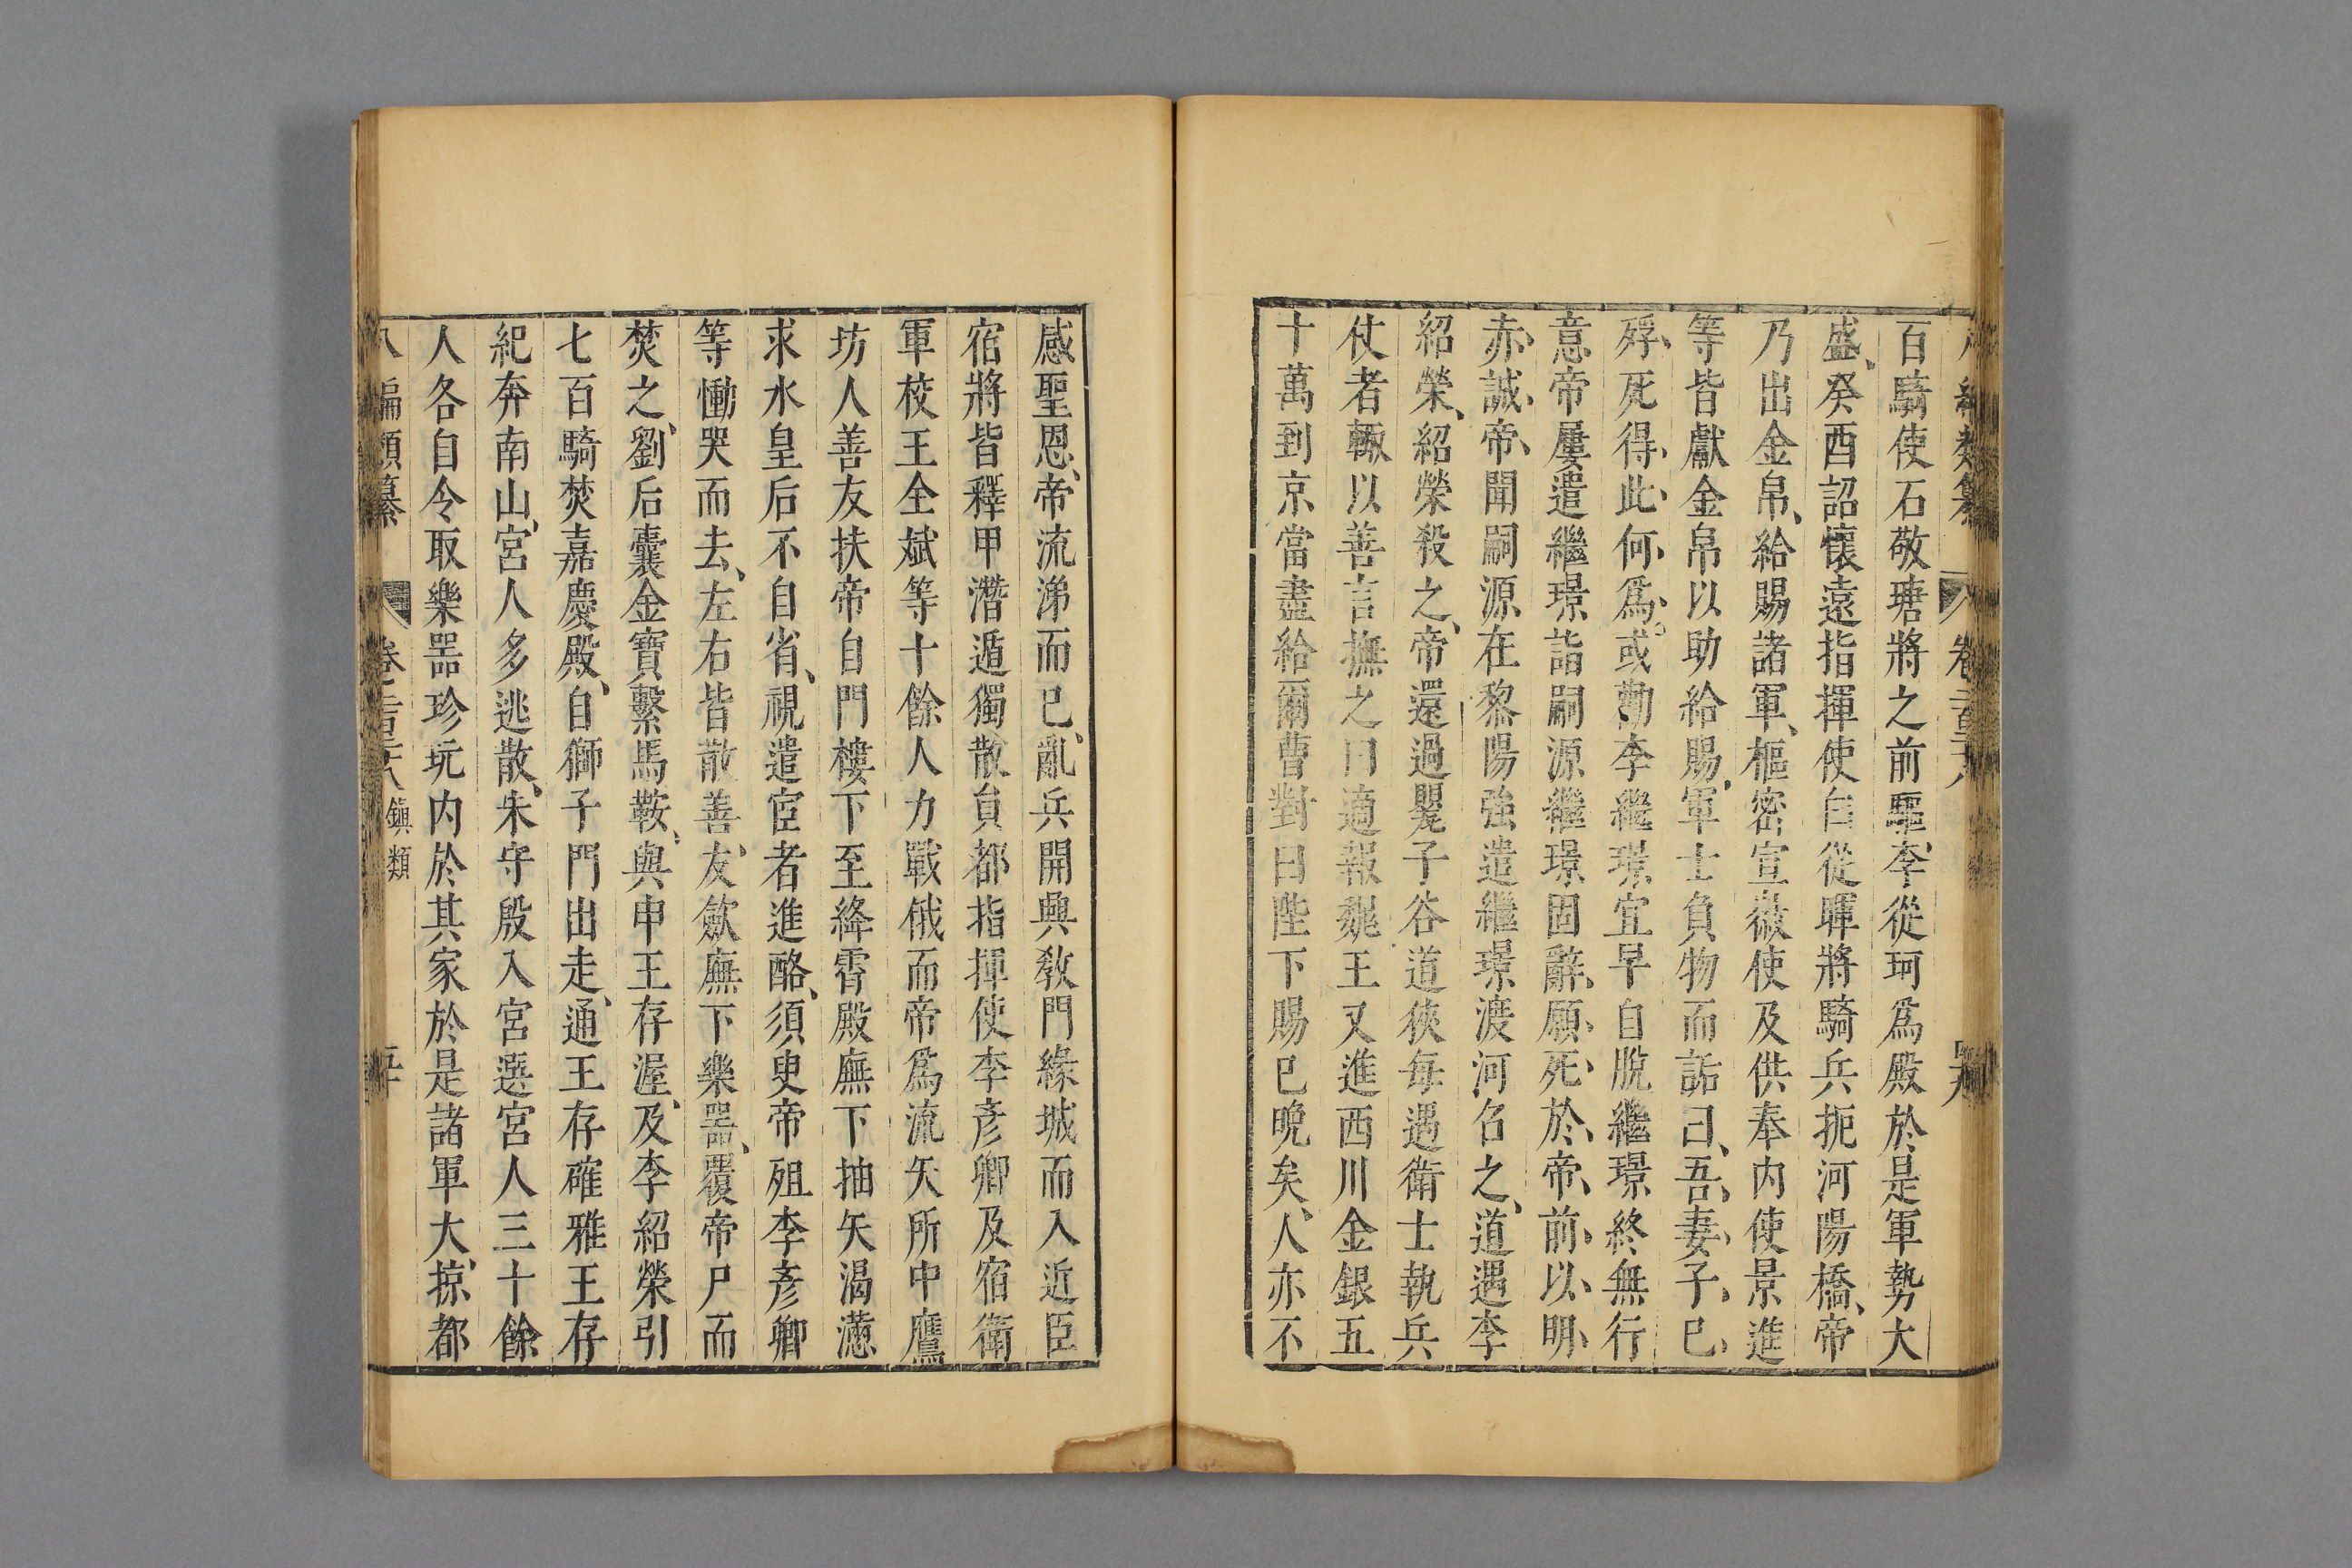 百騎使石敬瑭將之前驅、李從珂爲殿於是軍勢大
盛、癸酉詔懷遠指揮使白從暉將騎兵扼河陽橋、帝
乃出金帛、給賜諸軍、樞密宣徽使及供奉内使景進
等皆獻金帛以助給賜、軍士負物而詬曰、吾、妻、子、已、
殍、死得、此、何、爲。或勸李繼璟宜早自脫繼璟終無行
意帝屢遣繼璟詣嗣源繼璟固辭、願、死、於、帝、前、以、明、
赤、誠、帝、聞嗣源在黎陽強遣繼璟渡河召之、道遇李
紹榮、紹榮殺之、帝還過甖子谷道狹每遇衛士執兵
仗者輙以善言撫之曰適報魏王又進西川金銀五
十萬到京當盡給爾曹對曰陛下賜已晚矣、人亦不
感聖恩、帝流涕而已、亂兵開興教門緣城而入近臣
宿將皆釋甲潛遁獨散員都指揮使李彥卿及宿衛
軍校王全斌等十餘人力戰俄而帝爲流矢所中鷹
坊人善友扶帝自門樓下至絳霄殿廡下抽矢渴懣
求水皇后不自省、視遣宦者進酪、須臾帝殂李彥卿
等慟哭而去、左右皆散善、友歛廡下樂噐、覆帝尸而
焚之、劉后囊金寶繫馬鞍、與申王存渥、及李紹榮引
七百騎焚嘉慶殿、自獅子門出走、通王存確雅王存
紀奔南山、宮人多逃散、朱守殷入宮選宮人三十餘
人各自令取樂噐珍玩内於其家於是諸軍大、掠都
八編類纂 卷之二百二十八 鎭類 五十